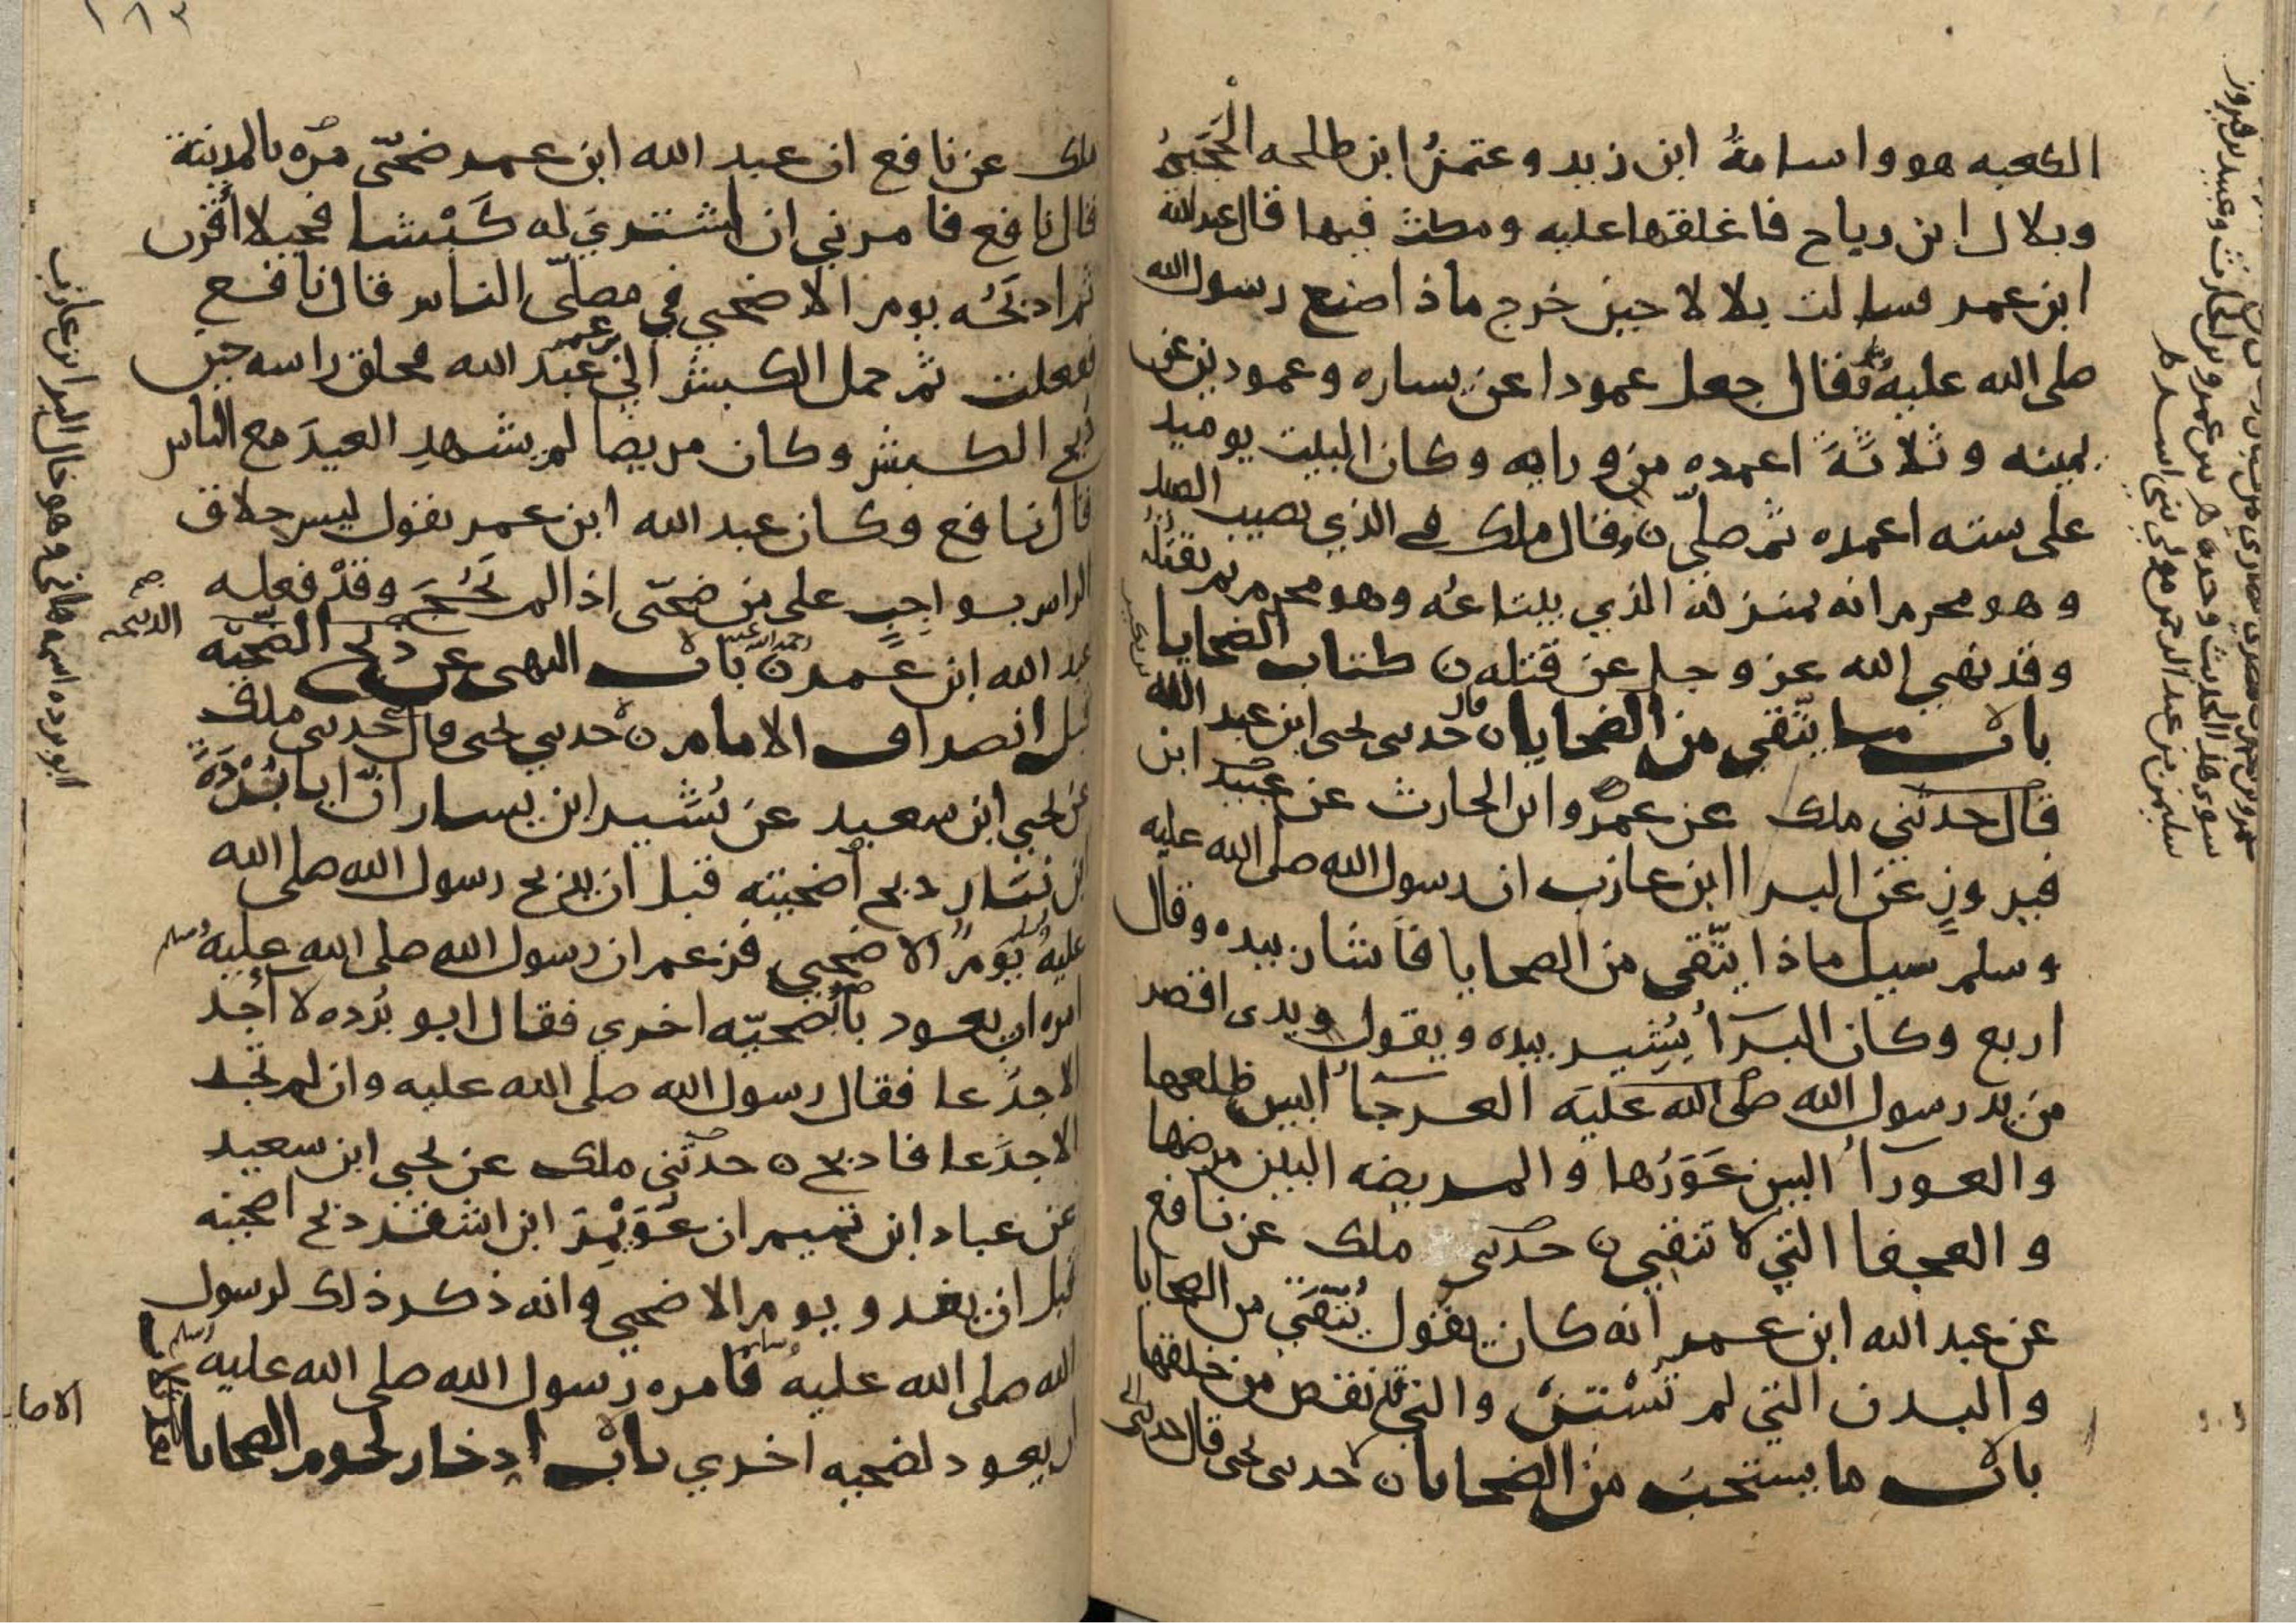 الكعبه هو واسامةُ ابن زيد وعثمنُ ابن طلحه الحَجَبيُّ
وبلال ابن رباح فاغلقها عليه ومكث فيها قال عبد الله
ابن عمر فسالت بلالا حين خرج ماذا صنع رسول الله
صلى الله عليه وسلم فقال جعل عمودا عن يساره وعمودين عن
يمينه وثلاثةَ اعمده من ورايه وكان البيت يوميد
على سته اعمده ثم صلّى ن وقال ملك في الذي يصيب الصيد
وهو محرم انه بمنزلة الذي يبتاعُه وهو محرم ثم يقتُلُه
وقد نهي الله عز وجل عن قتله ن كتاب الضحايا
باب ما يتّقي من الضحايا ن حدثني يحيى ابن عبد الله
قال حدثني ملك عن عمرو ابن الحارث عن عبيد ابن
فيروزٍ عن البرا ابن عازب ان رسول الله صلى الله عليه
وسلم سيل ماذا يتّقي من الضحايا فاشار بيده وقال
اربع وكان البرآُ يُشير بيده ويقول ويدى اقصر
من يد رسول الله صلى الله عليه العرجآُ البين ظلعها
والعورآُ البين عَوَرُها والمريضه البين مرضها
والعجفا التي لا تنقي ن حدثني ملك عن نافع
عن عبد الله ابن عمر انه كان يقول يُتّقَي من الضحايا
والبدن التي لم تُسْنن والتي نقص من خلقها
باب ما يستحبّ من الضحايا ن حدثني يحيى قال حدثني
سليمن بن عبد الرحمن مولى بني اسد
ملك عن نافع ان عبد الله ابن عمر ضحّى مرّه بالمدينة
قال نافع فامرني ان اشتري له كَبْشا فحيلا أقرن
ثم اذبَحُه يوم الاضحي في مصلّى الناس قال نافع
ففعلت ثم حمل الكبش الي عبد الله بن عمر فحلق راسه حين
ذبح الكبش وكان مريضا لم يشهدِ العيدَ مع الناس
قال نافع وكان عبد الله ابن عمر يقول ليس حلاق
الراس بواجبٍ على من ضحّى اذا لم يَحُجّ وقدْ فعله
عبد الله ابن عمر ن باب النهى عن ذبح الضحيّه
قبل انصراف الامام ن حدثني يحيى قال حدثني ملك
عن يحيي ابن سعيد عن بُشَير ابن يسار انّ ابا بُرْدَةَ
ابن نيار ذبح اضحيته قبل ان يذبح رسول الله صلى الله
عليه وسلم يومَ الاضحي فزعم ان رسول الله صلى الله عليه وسلم
امره ان يعود باضحيّه اخري فقال ابو بُرده لا أجد
الا جذَعا فقال رسول الله صلى الله عليه وان لم تجد
الا جذَعا فاذبح ن حدثني ملك عن يحيي ابن سعيد
عن عباد ابن تميم ان عُوَيْمِرَ ابن اشقر ذبح اضحيته
قبل ان يغدو يوم الاضحي وانه ذكر ذلك لرسول
الله صلى الله عليه وسلم فامره رسول الله صلى الله عليه وسلم
ان يعود لضحيه اخري باب ادخار لحوم الضحايا
ابو برده اسمه هانئ وهو خال البرا ابن عازب